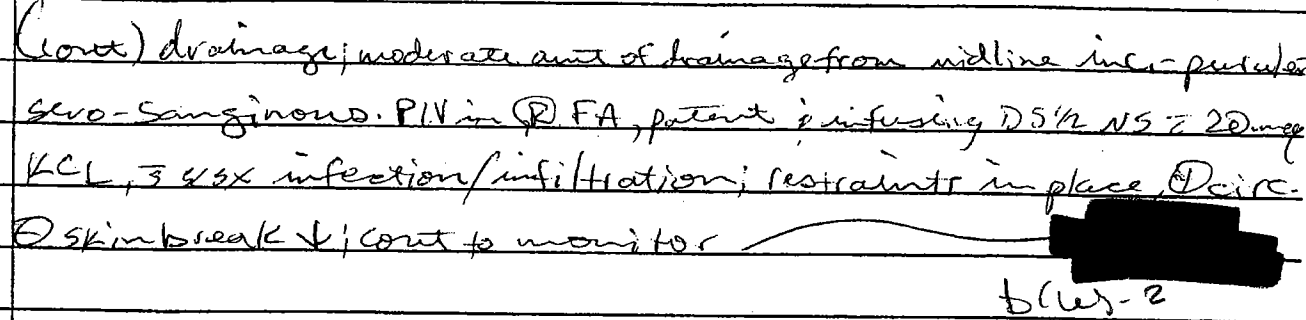 (cont) drainage; moderate amt of drainage from midline inc. - purulent
sero-sanginous. PIV in Ⓡ FA, patent ; infusing D5½ NS c̄ 20 meq
KCL, s̄ s/sx infection/infiltration; restraints in place, ⊕ circ.
⊖ skin break ↓; cont to monitor
b(6)-2